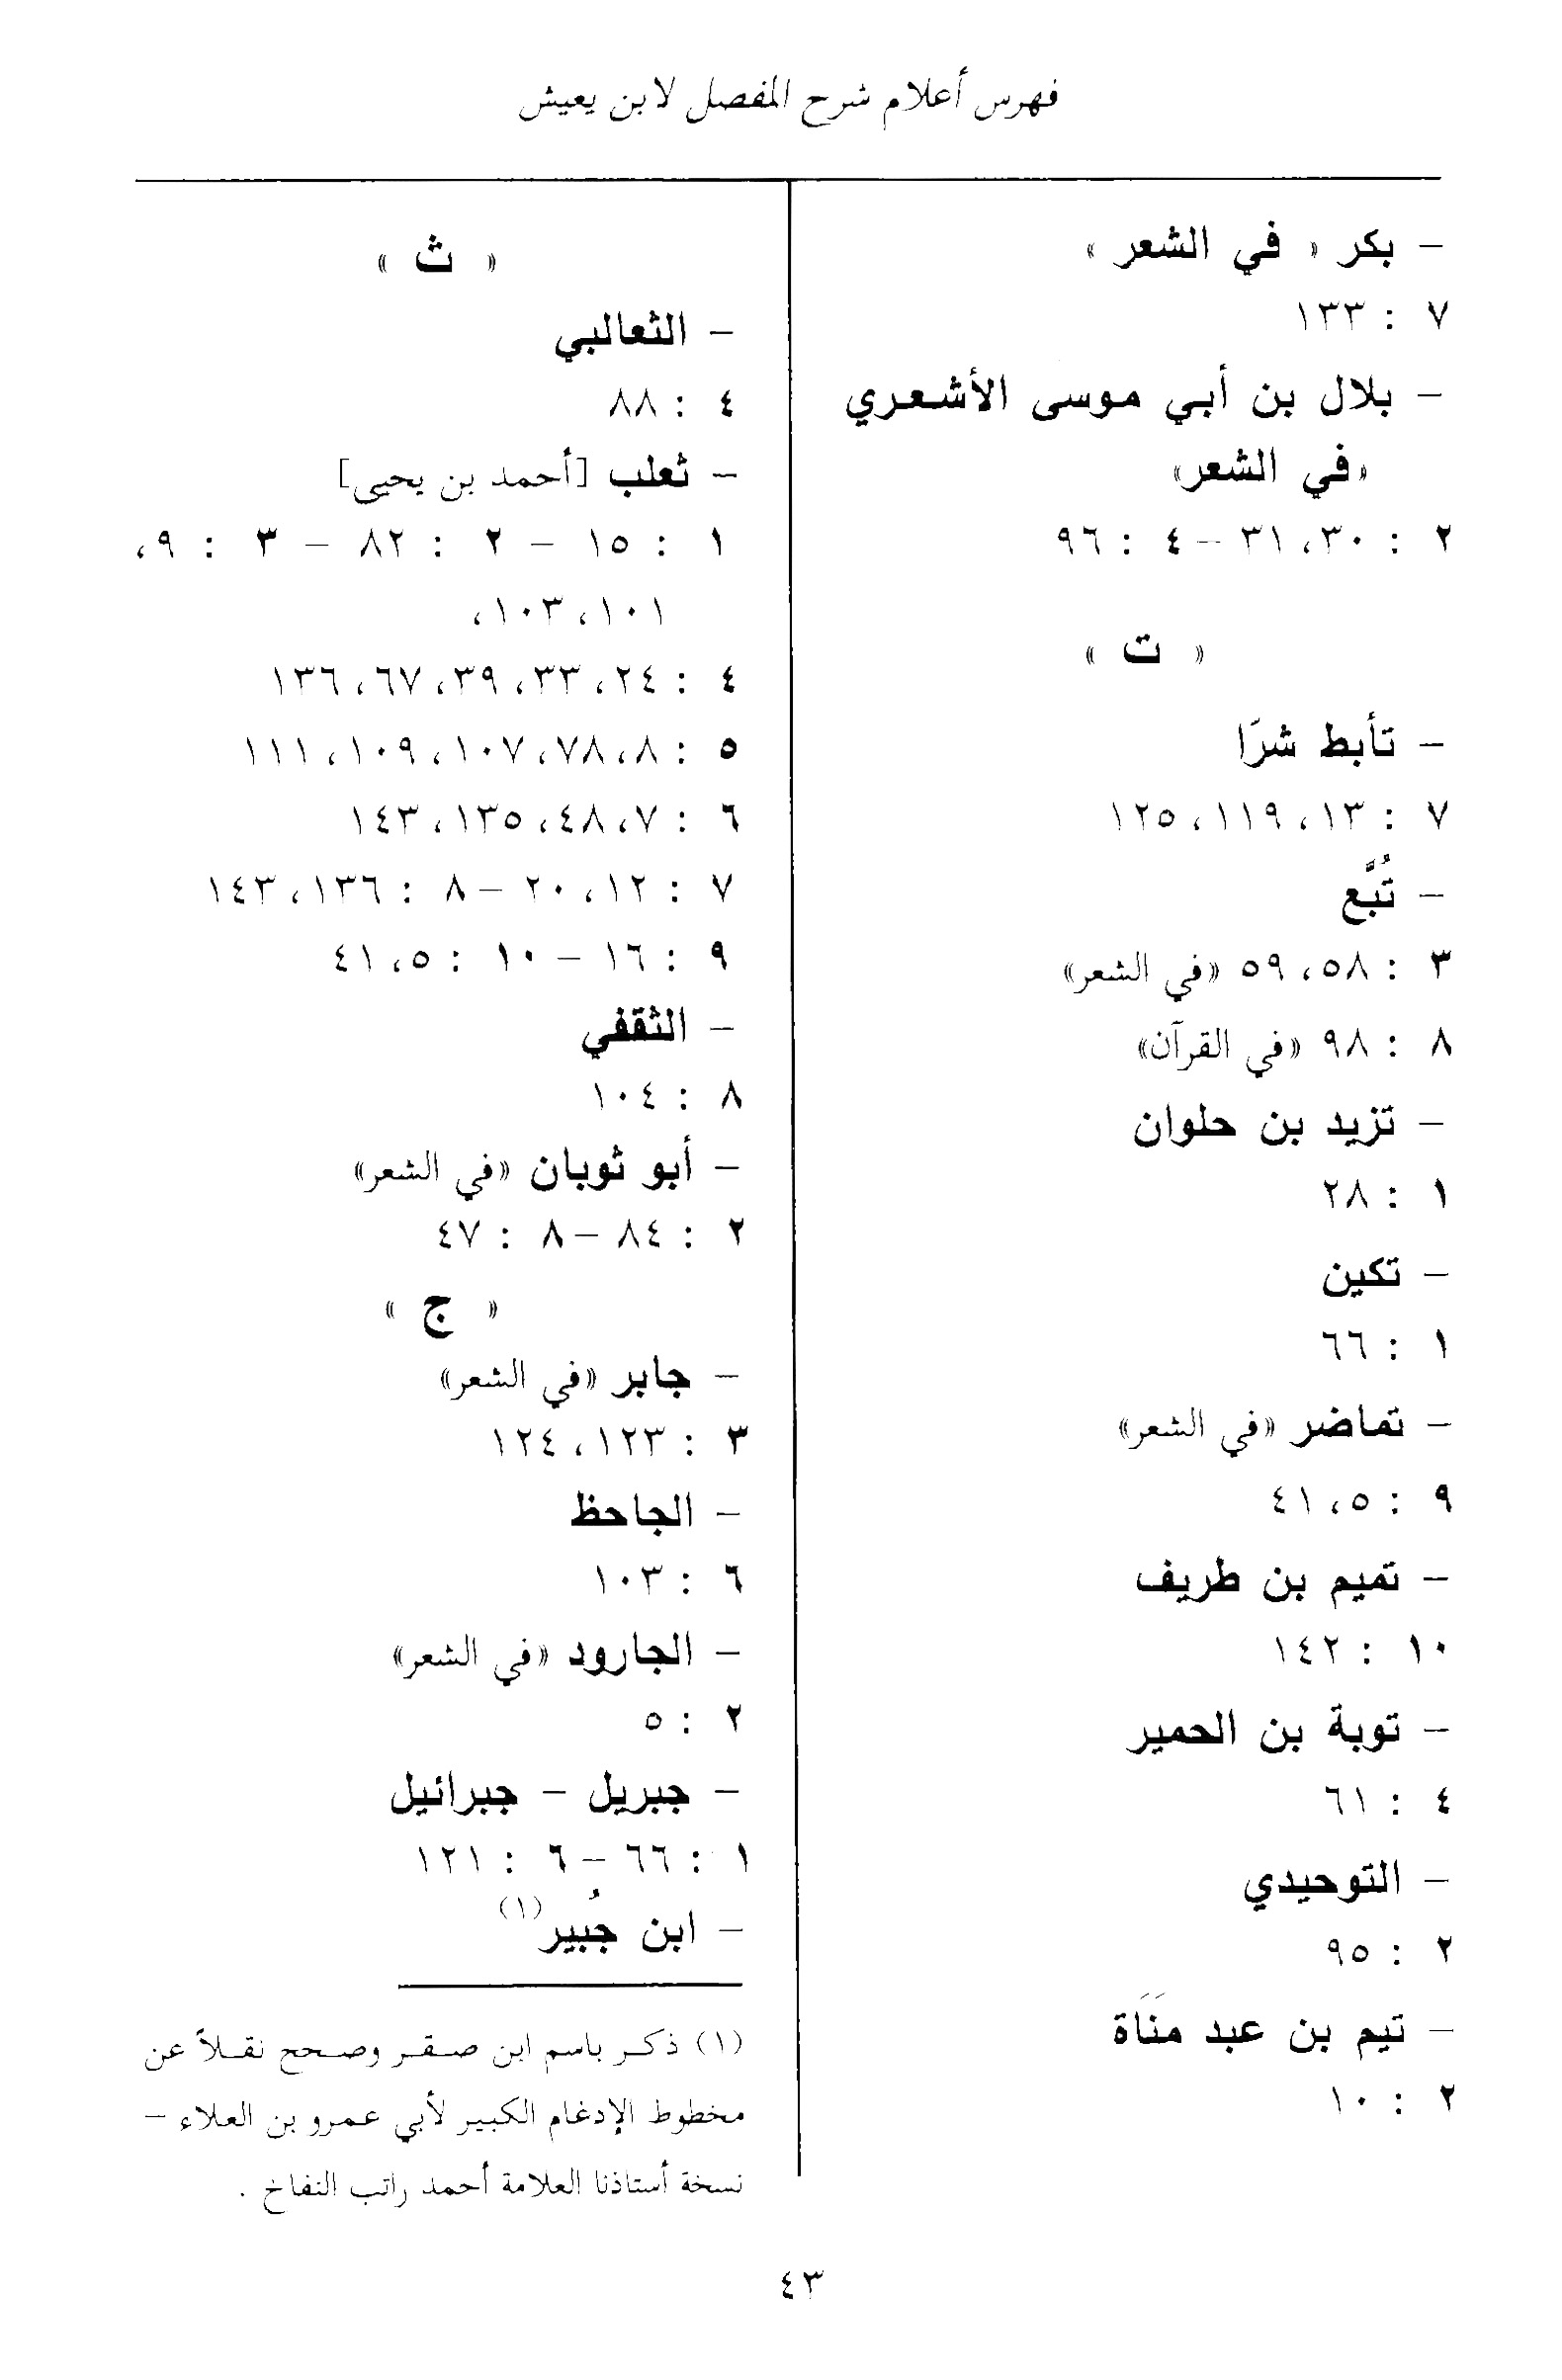 فهرس أعلام شرح المفصل لابن يعيش
- بكر « في الشعر »
٧ : ١٣٣
- بلال بن أبي موسى الأشعري
«في الشعر»
٢ : ٣٠، ٣١ - ٤ : ٩٦
« ت »
- تأبط شرّا
٧ : ١٣، ١١٩، ١٢٥
- تُبَّع
٣ : ٥٨، ٥٩ «في الشعر»
٨ : ٩٨ «في القرآن»
- تزيد بن حلوان
١ : ٢٨
- تكين
١ : ٦٦
- تماضر «في الشعر»
٩ : ٥، ٤١
- تميم بن طريف
١٠ : ١٤٢
- توبة بن الحمير
٤ : ٦١
- التوحيدي
٢ : ٩٥
- تيم بن عبد مَنَاة
٢ : ١٠
« ث »
- الثعالبي
٤ : ٨٨
- ثعلب [أحمد بن يحيى]
١ : ١٥ - ٢ : ٨٢ - ٣ : ٩،
١٠١، ١٠٣،
٤ : ٢٤، ٣٣، ٣٩، ٦٧، ١٣٦
٥ : ٨، ٧٨، ١٠٧، ١٠٩، ١١١
٦ : ٧، ٤٨، ١٣٥، ١٤٣
٧ : ١٢، ٢٠ - ٨ : ١٣٦، ١٤٣
٩ : ١٦ - ١٠ : ٥، ٤١
- الثقفي
٨ : ١٠٤
- أبو ثوبان «في الشعر»
٢ : ٨٤ - ٨ : ٤٧
« ج »
- جابر «في الشعر»
٣ : ١٢٣، ١٢٤
- الجاحظ
٦ : ١٠٣
- الجارود «في الشعر»
٢ : ٥
- جبريل - جبرائيل
١ : ٦٦ - ٦ : ١٢١
- ابن جُبير(١)
(١) ذكر باسم ابن صقر وصحح نقلاً عن
مخطوط الإدغام الكبير لأبي عمرو بن العلاء -
نسخة أستاذنا العلامة أحمد راتب النفاخ .
٤٣